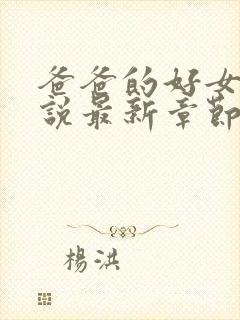 爸爸的好女
說最新章節
楊洪